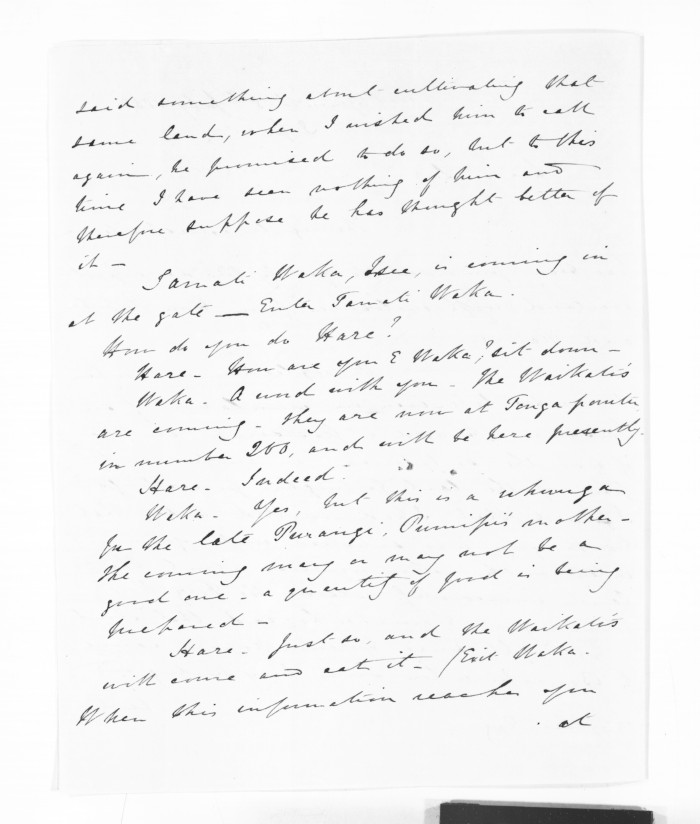 said something about cultivating that
same land, when I wished him to call
again, he promised to do so, but to this
time I have seen nothing of him and
therefore suppose he has thought better of
it —
Tamati Waka, I see, is coming in
at the gate — Enter Tamati Waka.
How do you do Hare?
Hare - How are you E Waka? sit down -
Waka - A word with you - The Waikato's
are coming - they are now at Tonga
in number 200, and will be here presently.
Hare - Indeed!
Waka - Yes, but this is a uhunga
for the late Parangi, mother -
the coming may or may not be a
good one - a quantity of food is being
prepared -
Hare - Just so, and the Waikato's
will come and eat it - (Exit Waka.
When this information reaches you
at